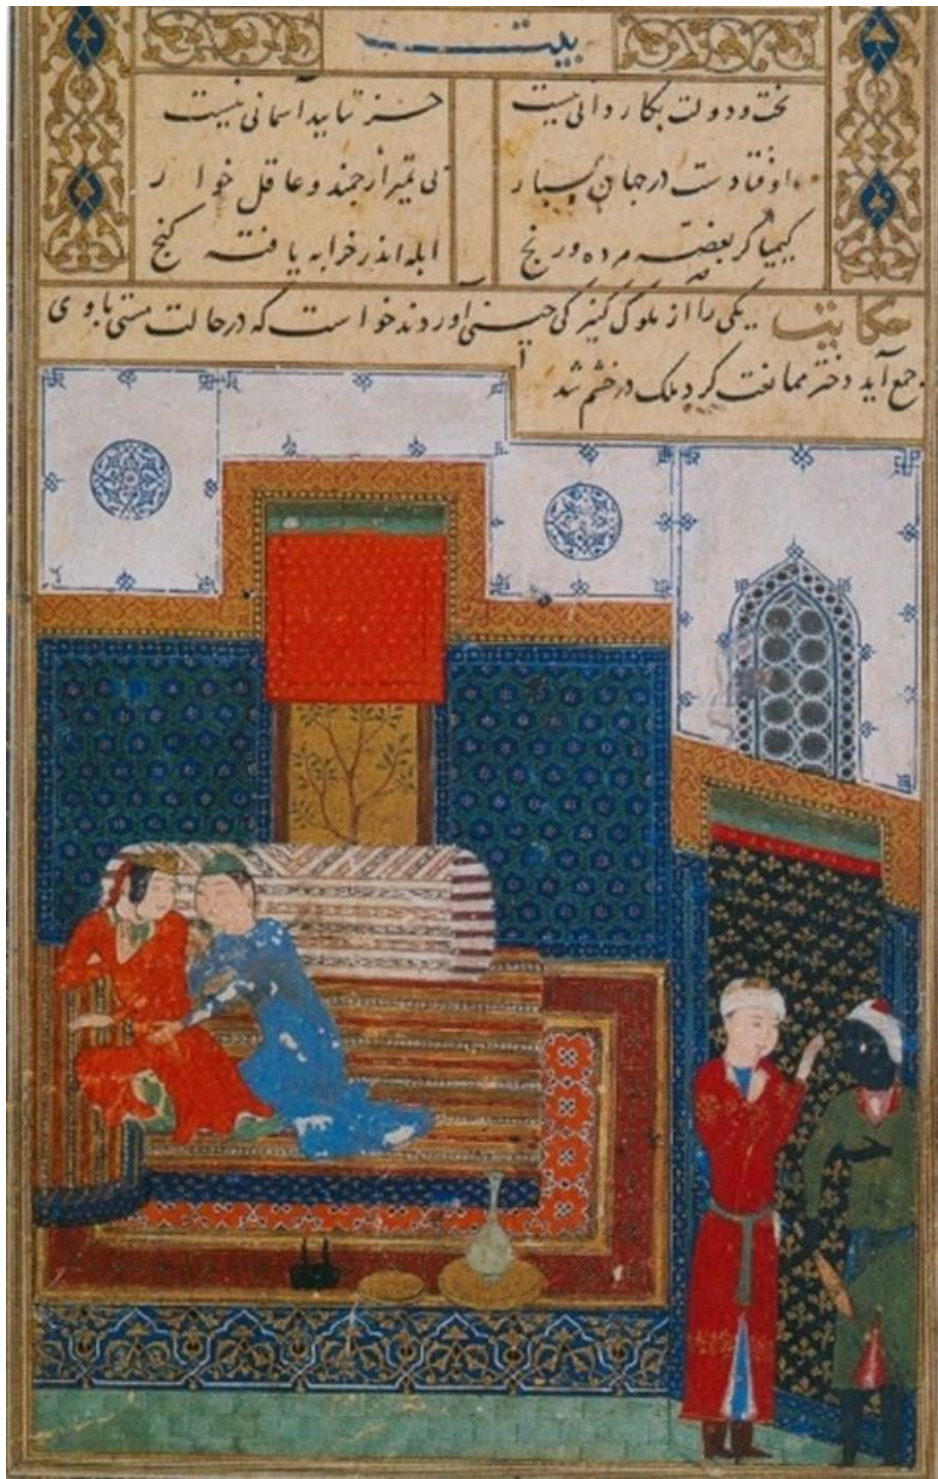 بیت
بخت و دولت بکاردانی نیست جز بتایید آسمانی نیست
اوفتادست در جهان بسیار بی تمیز ارجمند و عاقل خوار
کیمیاگر بغصه مرده و رنج ابله اندر خرابه یافته گنج
حکایت یکی را از ملوک کنیزکی چینی آوردند خواست که در حالت مستی با وی
جمع آید دختر ممانعت کرد ملک در خشم شد